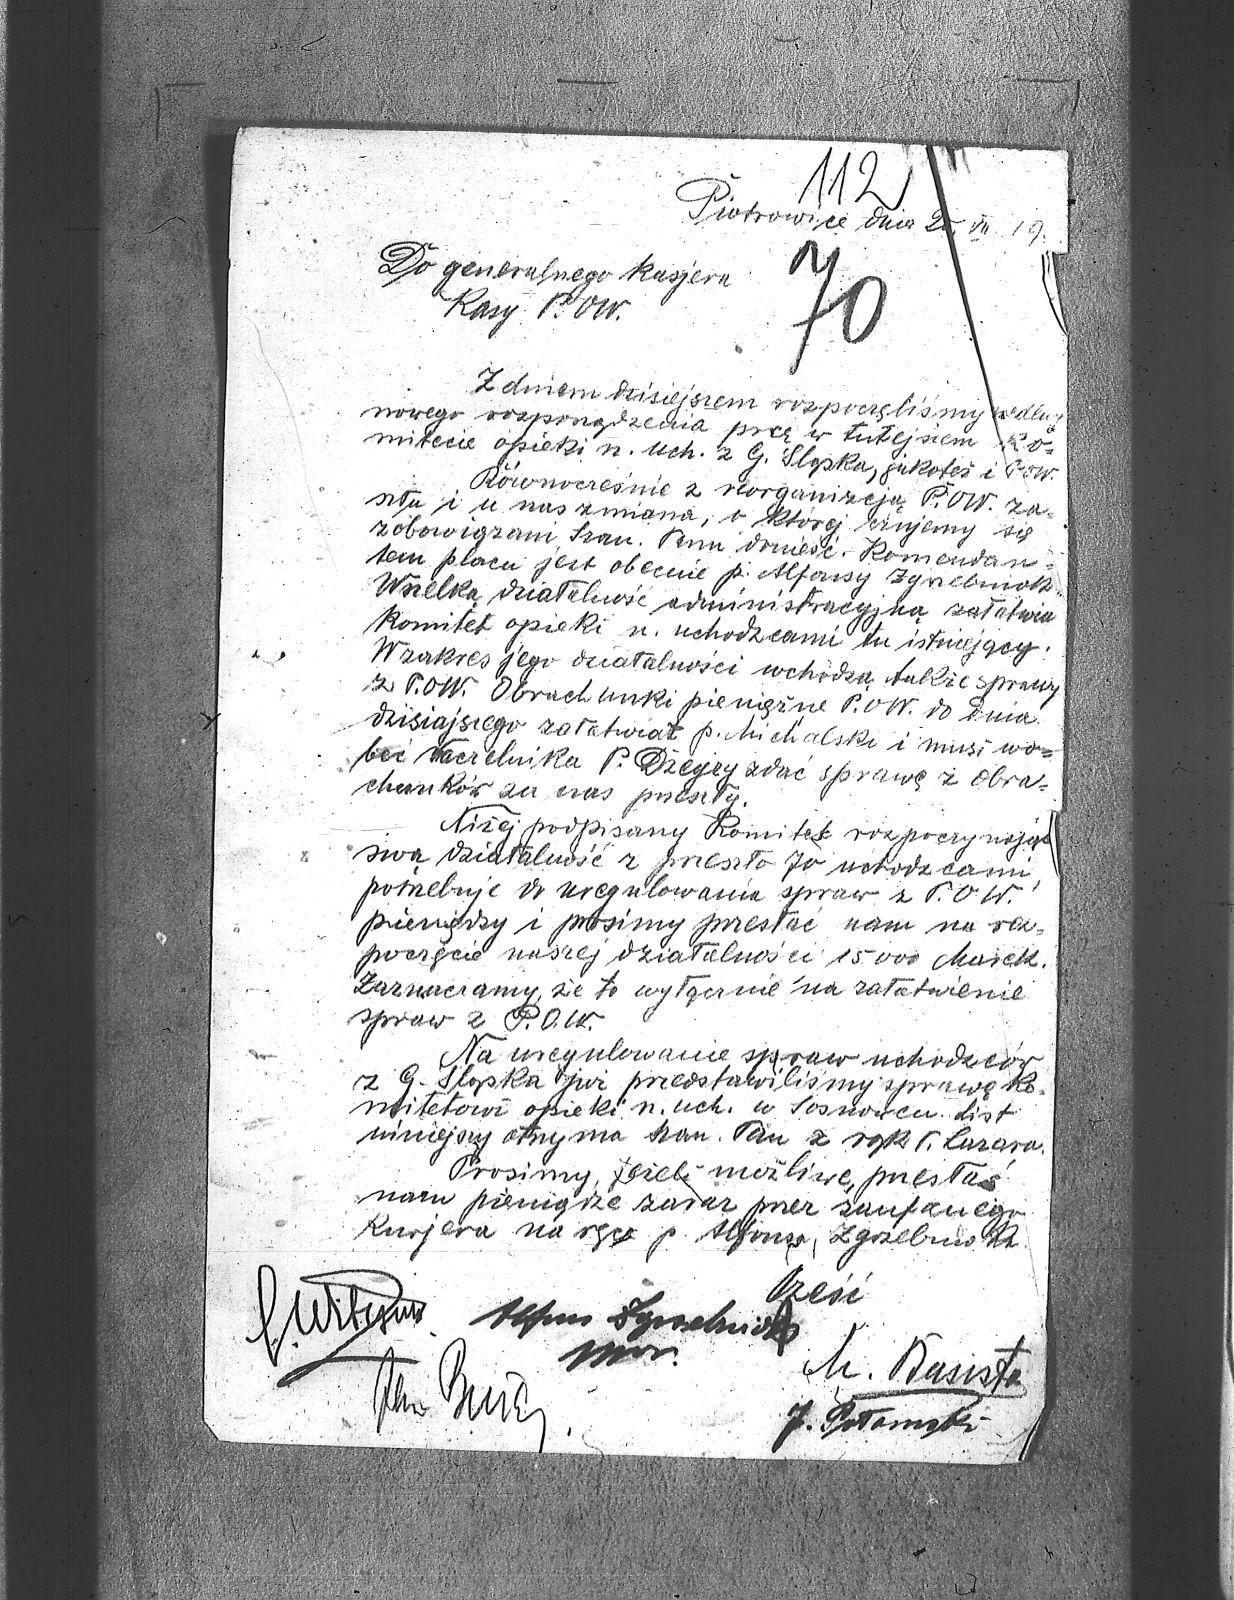 112
Piotrowice dnia 25 VII 19.
70
Do generalnego kasjera
Kasy P.OW.
Z dniem dzisiejszem rozpoczęliśmy według
nowego rozporządzenia pracę w tutejszem Ko-
mitecie opieki n. uch. z G. Śląska, jakoteż i P.OW.
Równocześnie z reorganizacją P.OW. za-
szła i u nas zmiana, o której czujemy się
zobowiązani Szan. Panu donieść. Komendan-
tem placu jest obecnie p. Alfonsy Zgrzebniok.
Wszelką działalność administracyjną załatwia
Komitet opieki n. uchodzcami tu istniejący.
W zakres jego działalności wchodzą także sprawy
z P.OW. Obrachunki pieniężne P.OW. do dnia
dzisiajszego załatwiał p. Michalski i musi wo-
bec Naczelnika P. Dzięgzy zdać sprawę z obra-
chunków za czas przeszły.
Niżej podpisany Komitet rozpoczynając
swą działalność z przeszło 70 uchodzcami,
potrzebuje do uregulowania spraw z P.O.W.
pieniędzy i prosimy przesłać nam na roz-
poczęcie naszej działalności 15000 Marek.
Zaznaczamy, że to wyłącznie na załatwienie
spraw z P.O.W.
Na uregulowanie spraw uchodzców
z G. Śląska już przedstawiliśmy sprawę Ko-
mitetowi opieki n. uch. w Sosnowcu. List
niniejszy otrzyma Szan. Pan z rąk P. Lazara.
Prosimy, jeżeli możliwe, przesłać
nam pieniądze zaraz przez zaufanego
Kurjera na ręce p. Alfonsa Zgrzebnioka
Cześć
Alfons Zgrzebniok
M. Basista
Jan
J. Potamski